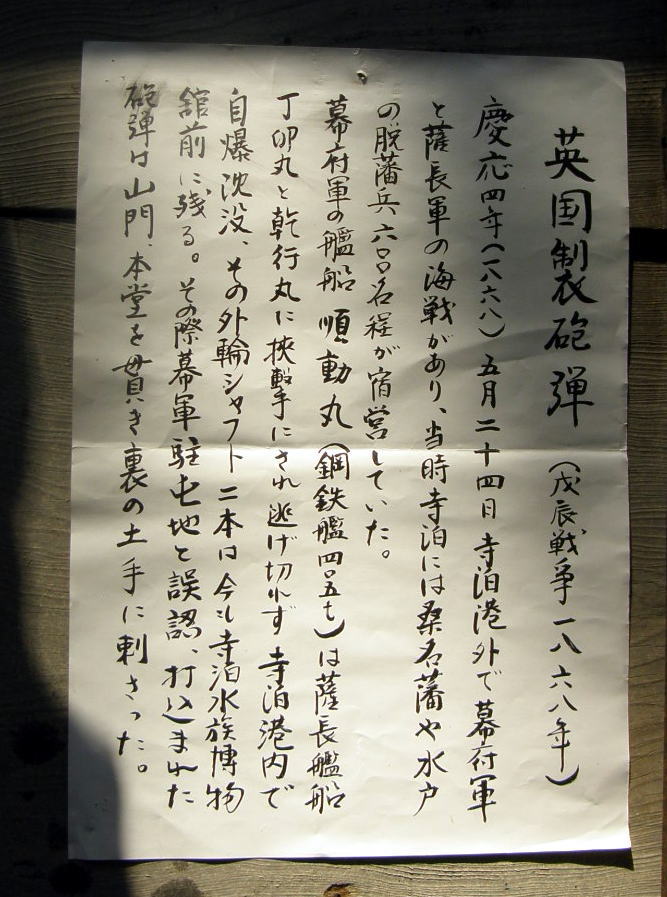 英国製砲弾（戊辰戦争一八六八年）
慶応四年（一八六八）五月二十四日寺泊港外で幕府軍
と薩長軍の海戦があり、当時寺泊には桑名藩や水戸
の脱藩兵六〇〇名程が宿営していた。
幕府軍の艦船順動丸（鋼鉄艦四〇五t）は薩長艦船
丁卯丸と乾行丸に挾撃にされ逃げ切れず寺泊港内で
自爆沈没、その外輪シャフト二本は今も寺泊水族博物
舘前に残る。その際幕軍駐屯地と誤認、打込まれた
砲弾は山門、本堂を貫き裏の土手に刺さった。